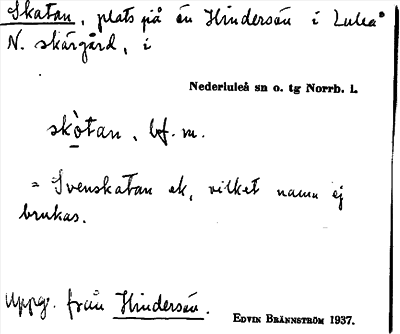 Skatan, plats på ön Hindersön i Luleå
N. skärgård, i
Nederluleå sn o. tg Norrb. l.
skòtan, bf. m.
= Svenskatan ek, vilket namn ej
brukas.
Uppg. från Hindersön.
EDVIN BRÄNNSTRÖM 1937.